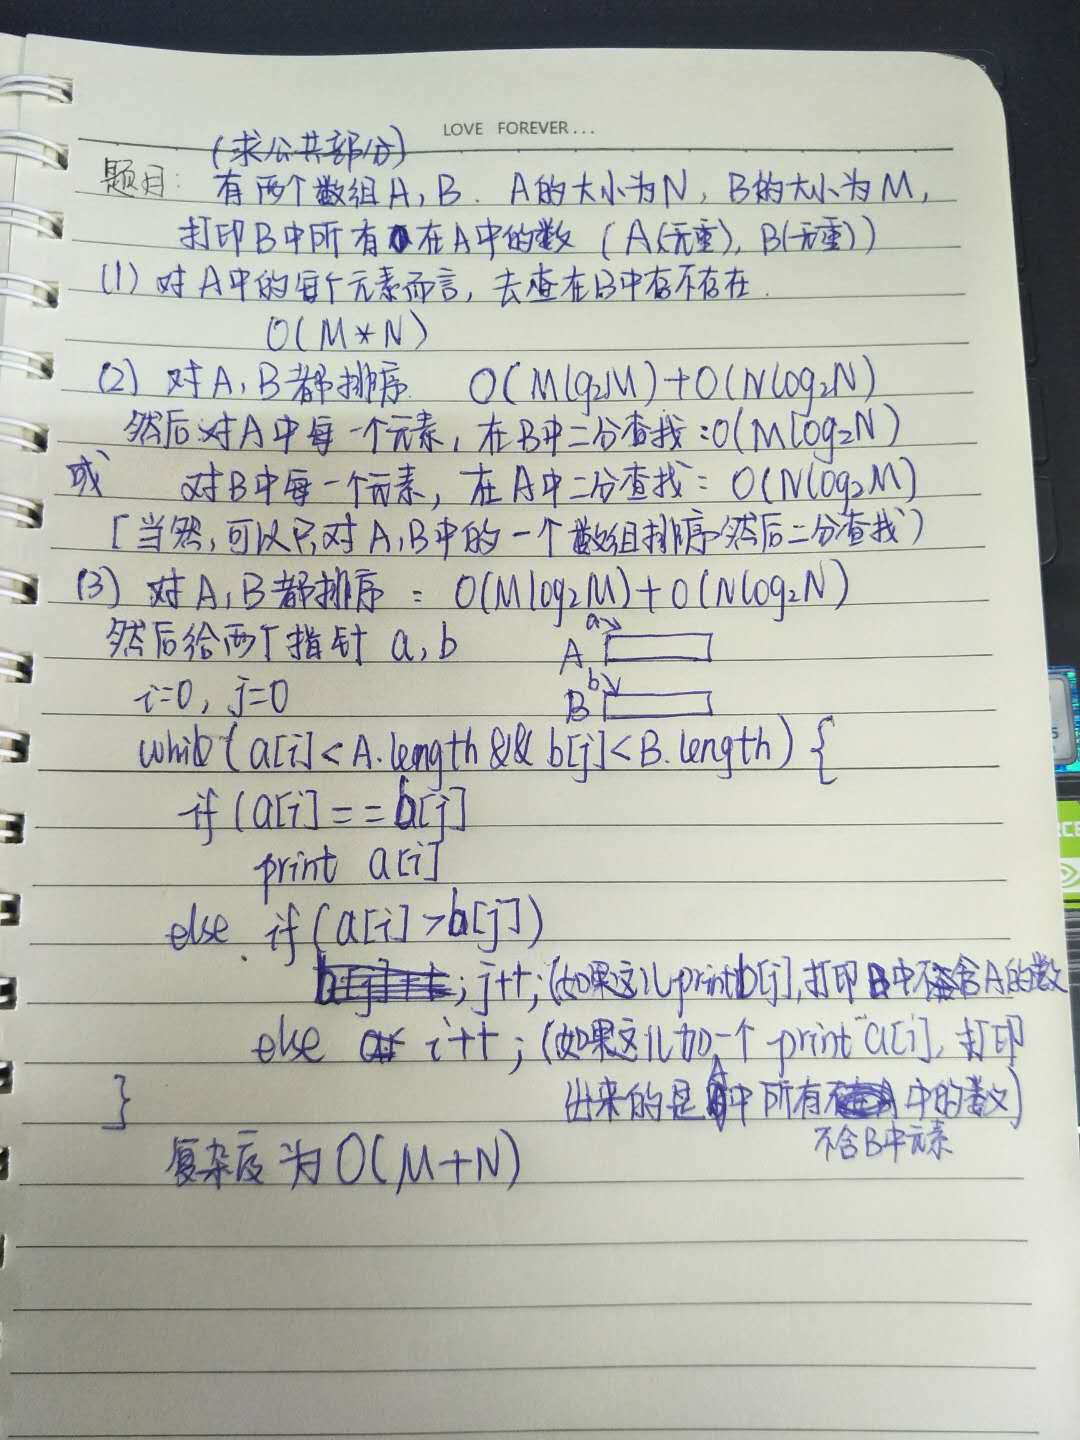 LOVE FOREVER...
(求公共部分)
题目: 有两个数组A,B. A的大小为N, B的大小为M,
打印B中所有在A中的数 (A(无重), B(无重))
(1) 对A中的每个元素而言, 去查在B中存不存在.
O(M*N)
(2) 对A,B都排序. O(Mlog₂M)+O(Nlog₂N)
然后对A中每一个元素, 在B中二分查找:O(Mlog₂N)
或 对B中每一个元素, 在A中二分查找: O(Nlog₂M)
[当然,可以只对A,B中的一个数组排序然后二分查找)
(3) 对A,B都排序: O(Mlog₂M)+O(Nlog₂N)
然后给两个指针 a,b
a
A
i=0, j=0
b
B
while(a[i]<A.length && b[j]<B.length) {
if (a[i]==b[j]
print a[i]
else if(a[i]>b[j])
; j++;(如果这儿print b[j],打印B中不含A的数
else i++;(如果这儿加一个 print a[i], 打印
出来的是A中所有中的数)
不含B中元素
}
复杂度为O(M+N)